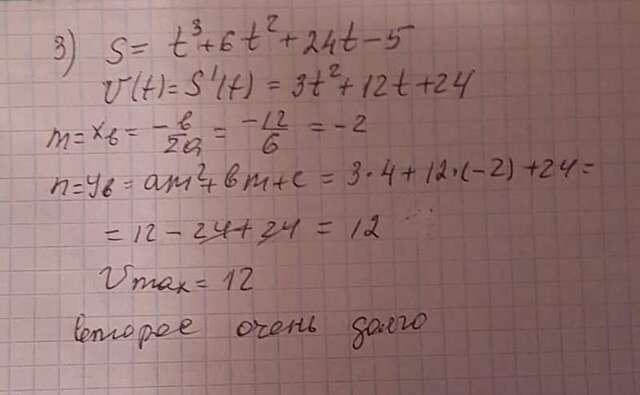 3) S = t³ + 6t² + 24t - 5
v(t) = S'(t) = 3t² + 12t + 24
m = xв = -в/2a = -12/6 = -2
n = yв = am² + вm + c = 3·4 + 12·(-2) + 24 =
= 12 - 24 + 24 = 12
Vmax = 12
второе очень долго